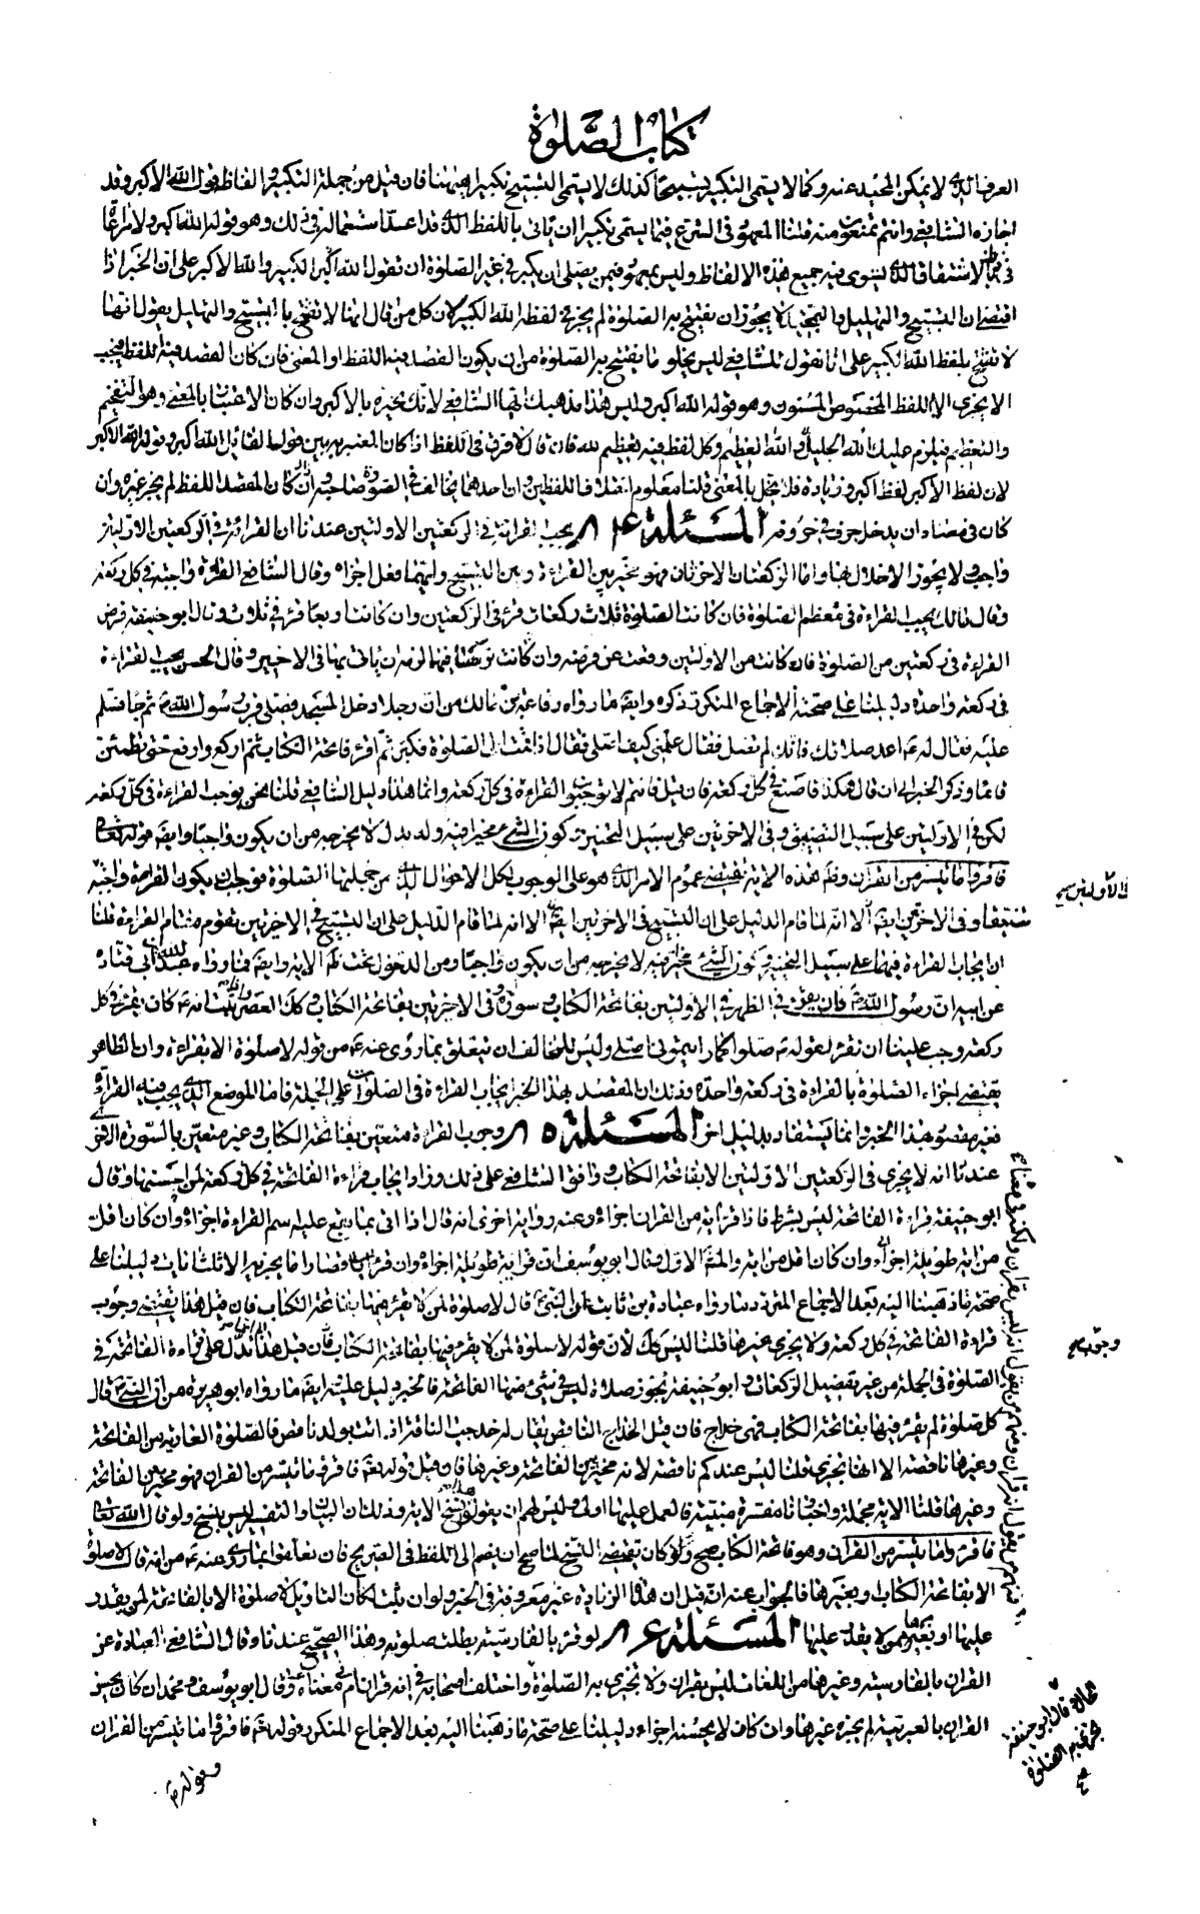 كتاب الصلوة
العرف الذي لا يمكن المحيد عنه وكما لا يسمى التكبير تسبيحا كذلك لا يسمى التسبيح تكبيرا فان قيل من جملة التكبير والفاظه قول الله الاكبر وقد
اجازه الشافعي وانتم تمنعون منه قلنا المعهود في الشرع فيما يسمى تكبيرا ان ياتي باللفظ الذي قد اعتدنا استعماله في ذلك وهو قوله الله اكبر ولا مراعاة
الاشتقاق الذي يستوى فيه جميع هذه الالفاظ وليس بمعهود فيمن يصلى ان يكبر في غير الصلوة ان تقول الله اكبر الكبير والله الاكبر على ان الخبر اذا
اقتضى ان التسبيح والتهليل والتحميد لا يجوز ان يفتتح به الصلوة لم يجز في لفظه الله الكبير لان كل من قال انها لا تفتتح بالتسبيح والتهليل يقول انها
لا تفتتح بلفظ الله الكبير على انا نقول للشافعي ليس يخلو ما يفتتح به الصلوة من ان يكون القصد فيه اللفظ او المعنى فان كان القصد فيه اللفظ فيجب
الا يجزى الا اللفظ المخصوص المسنون وهو قوله الله اكبر وليس هذا مذهبك ايها الشافعي لانك تجيزه بالاكبر وان كان الاعتبار بالمعنى وهو التفخيم
والتعظيم فيلزم عليك الله الجليل والله العظيم وكل لفظ فيه تعظيم لله فان قال لا فرق في اللفظ اذا كان المعتبر به بين قول القائل الله اكبر وقوله الله الاكبر
لان لفظ الاكبر لفظ اكبر وزيادة فلا يخل بالمعنى قلنا معلوم اختلاف اللفظين وان احدهما يخالف في الصورة صاحبه وان كان القصد اللفظ لم يجز غيره وان
كان في معناه وان يدخل حرف في حروفه المسئلة ٨٤ يجب القرائة في الركعتين الاولتين عندنا ان القرائة في الركعتين الاولتين
واجبة ولا يجوز الاخلال بها واما الركعتان الاخرتان فهو مخير بين القراءة وبين التسبيح وايهما فعل اجزاه وقال الشافعي القراءة واجبة في كل ركعة
وقال مالك يجب القراءة في معظم الصلوة فان كانت الصلوة ثلاث ركعات قرء في الركعتين وان كانت اربعا قرء في ثلاث وقال ابو حنيفة فرض
القراءة في ركعتين من الصلوة فان كانت من الاولتين وقعت عن فرضه وان كانت تركها فيهما لزمه ان ياتى بها في الاخيرين وقال الحسن يجب القراءة
في ركعة واحدة دليلنا على صحته الاجماع المتكرر ذكره وايضا ما رواه رفاعة بن مالك من ان رجلا دخل المسجد فصلى قرب رسول الله ثم جاء فسلم
عليه فقال له اعد صلاتك فانك لم تصل فقال علمنى كيف اصلى فقال اذا قمت الى الصلوة فكبر ثم اقرء فاتحة الكتاب ثم اركع وارفع حتى تطمئن
قائما وذكر الخبر الى ان قال هكذا فاصنع في كل ركعة فان قيل فانتم لا توجبون القراءة في كل ركعة وانما هذا دليل الشافعي قلنا نحن نوجب القراءة في كل ركعة
لكن في الاولتين على سبيل التضييق وفي الاخرتين على سبيل التخيير وكون الشيء مخيرا فيه وله بدل لا يخرجه من ان يكون واجبا وايضا قوله تعالى
فاقرؤا ما تيسر من القران وظاهر هذه الاية يقتضى عموم الامر الذي هو على الوجوب لكل الاحوال التي من جملتها الصلوة فوجب ان يكون القراءة واجبة
وفي الاخرتين ايضا الا انه لما قام الدليل على ان التسبيح في الاخرتين يقوم مقام القراءة قلنا
ان ايجاب القراءة فيهما على سبيل التخيير وكون الشيء مخيرا فيه لا يخرجه من ان يكون واجبا ومن الدخول تحت الاية وايضا فما رواه عبد الله بن ابي قتادة
عن ابيه ان رسول الله كان يقرء في الظهر في الاولتين بفاتحة الكتاب وسورة وفي الاخرتين بفاتحة الكتاب وكذا العصر كان يقرء في كل
ركعة وجب علينا ان نقرء لقوله صلوا كما رايتموني اصلى وليس للمخالف ان يتعلق بما روى عنه من قوله لا صلوة الا بقراءة وان الظاهر
يقتضى اجزاء الصلوة بالقراءة في ركعة واحدة وذلك ان القصد بهذا الخبر ايجاب القراءة في الصلوات على الجملة فاما الموضع الذي يجب فيه القراءة
فغير مقصود بهذا الخبر وانما يستفاد بدليل اخر المسئلة ٨٥ وجوب القراءة متعين بفاتحة الكتاب وغير متعين بالسورة الاخرى
عندنا انه لا يجزى في الركعتين الاولتين الا بفاتحة الكتاب ووافق الشافعي على ذلك وزاد ايجاب قراءة الفاتحة في كل ركعة لمن احسنها وقال
ابو حنيفة قراءة الفاتحة ليس بشرط فاذا قرء اية من القران اجزاه وعنه رواية اخرى انه قال اذا اتى بما يقع عليه اسم القراءة اجزاه وان كان اقل
من اية طويلة اجزاه وان كان اقل من اية والمشهور الاول وقال ابو يوسف ان قرء اية طويلة اجزاه وان قرء اية قصارا فما يجزيه الا ثلث ايات دليلنا على
صحة ما ذهبنا اليه بعد الاجماع المتردد ما رواه عبادة بن ثابت ان النبي قال لا صلوة لمن لا يقرء فيها بفاتحة الكتاب فان قيل هذا يقتضى وجوب
قراءة الفاتحة في كل ركعة ولا يجزى غيرها قلنا ليس كذلك لان قوله لا صلوة لمن لا يقرء فيها بفاتحة الكتاب يدل على قراءة الفاتحة في
الصلوة في الجملة من غير تفصيل الركعات وابو حنيفة يجوز صلاة ليس في شيء منها الفاتحة فالخبر دليل عليه ايضا ما رواه ابو هريرة من ان النبي قال
كل صلوة لم يقرء فيها بفاتحة الكتاب فهي خداج فان قيل الخداج الناقص يقال خدجت الناقة اذا اتت بولد ناقص فالصلوة العارية من الفاتحة
وغيرها ناقصة الا انها تجزى قلنا ليس عندكم ناقصة لانه مخير بين الفاتحة وغيرها فان قيل قوله تعالى فاقرؤا ما تيسر من القران فهو مخير بين الفاتحة
وغيرها قلنا الاية مجملة واخبارنا مفسرة مبينة فالعمل عليها اولى وليس لهم ان يقولوا نسخ الاية وذلك ان البيان والتفسير ليس بنسخ ولو قال الله تعالى
فاقرؤا ما تيسر من القران وهو فاتحة الكتاب صح ولو كان يقتضى النسخ لما صح ان يضم الى اللفظ في الصريح فان تعلقوا بما روى عنه من انه قال لا صلوة
الا بفاتحة الكتاب او بغيرها فالجواب عنه انه قيل ان هذه الزيادة غير معروفة في الخبر ولو ان ثبت لكان التاويل لا صلوة الا بالفاتحة لمن يقدر
عليها او بغيرها لمن لا يقدر عليها المسئلة ٨٦ لو قرء بالفارسية بطلت صلوته وهذا الصحيح عندنا وقال الشافعي العبادة عن
القران بالفارسية وغيرها من اللغات ليس بقران ولا تجزى به الصلوة واختلف اصحابه في انه قران ام في معناه وقال ابو يوسف ومحمد ان كان يحسن
القران بالعربية لم يجزه غيرها وان كان لا يحسنه اجزاه دليلنا على صحة ما ذهبنا اليه بعد الاجماع المتكرر قوله تعالى فاقرؤا ما تيسر من القران
وقوله
في الاولتين
منهم من يقول انه قران ومنهم من يقول انه ليس بقران ولكنه في معناه
قال ابو حنيفة